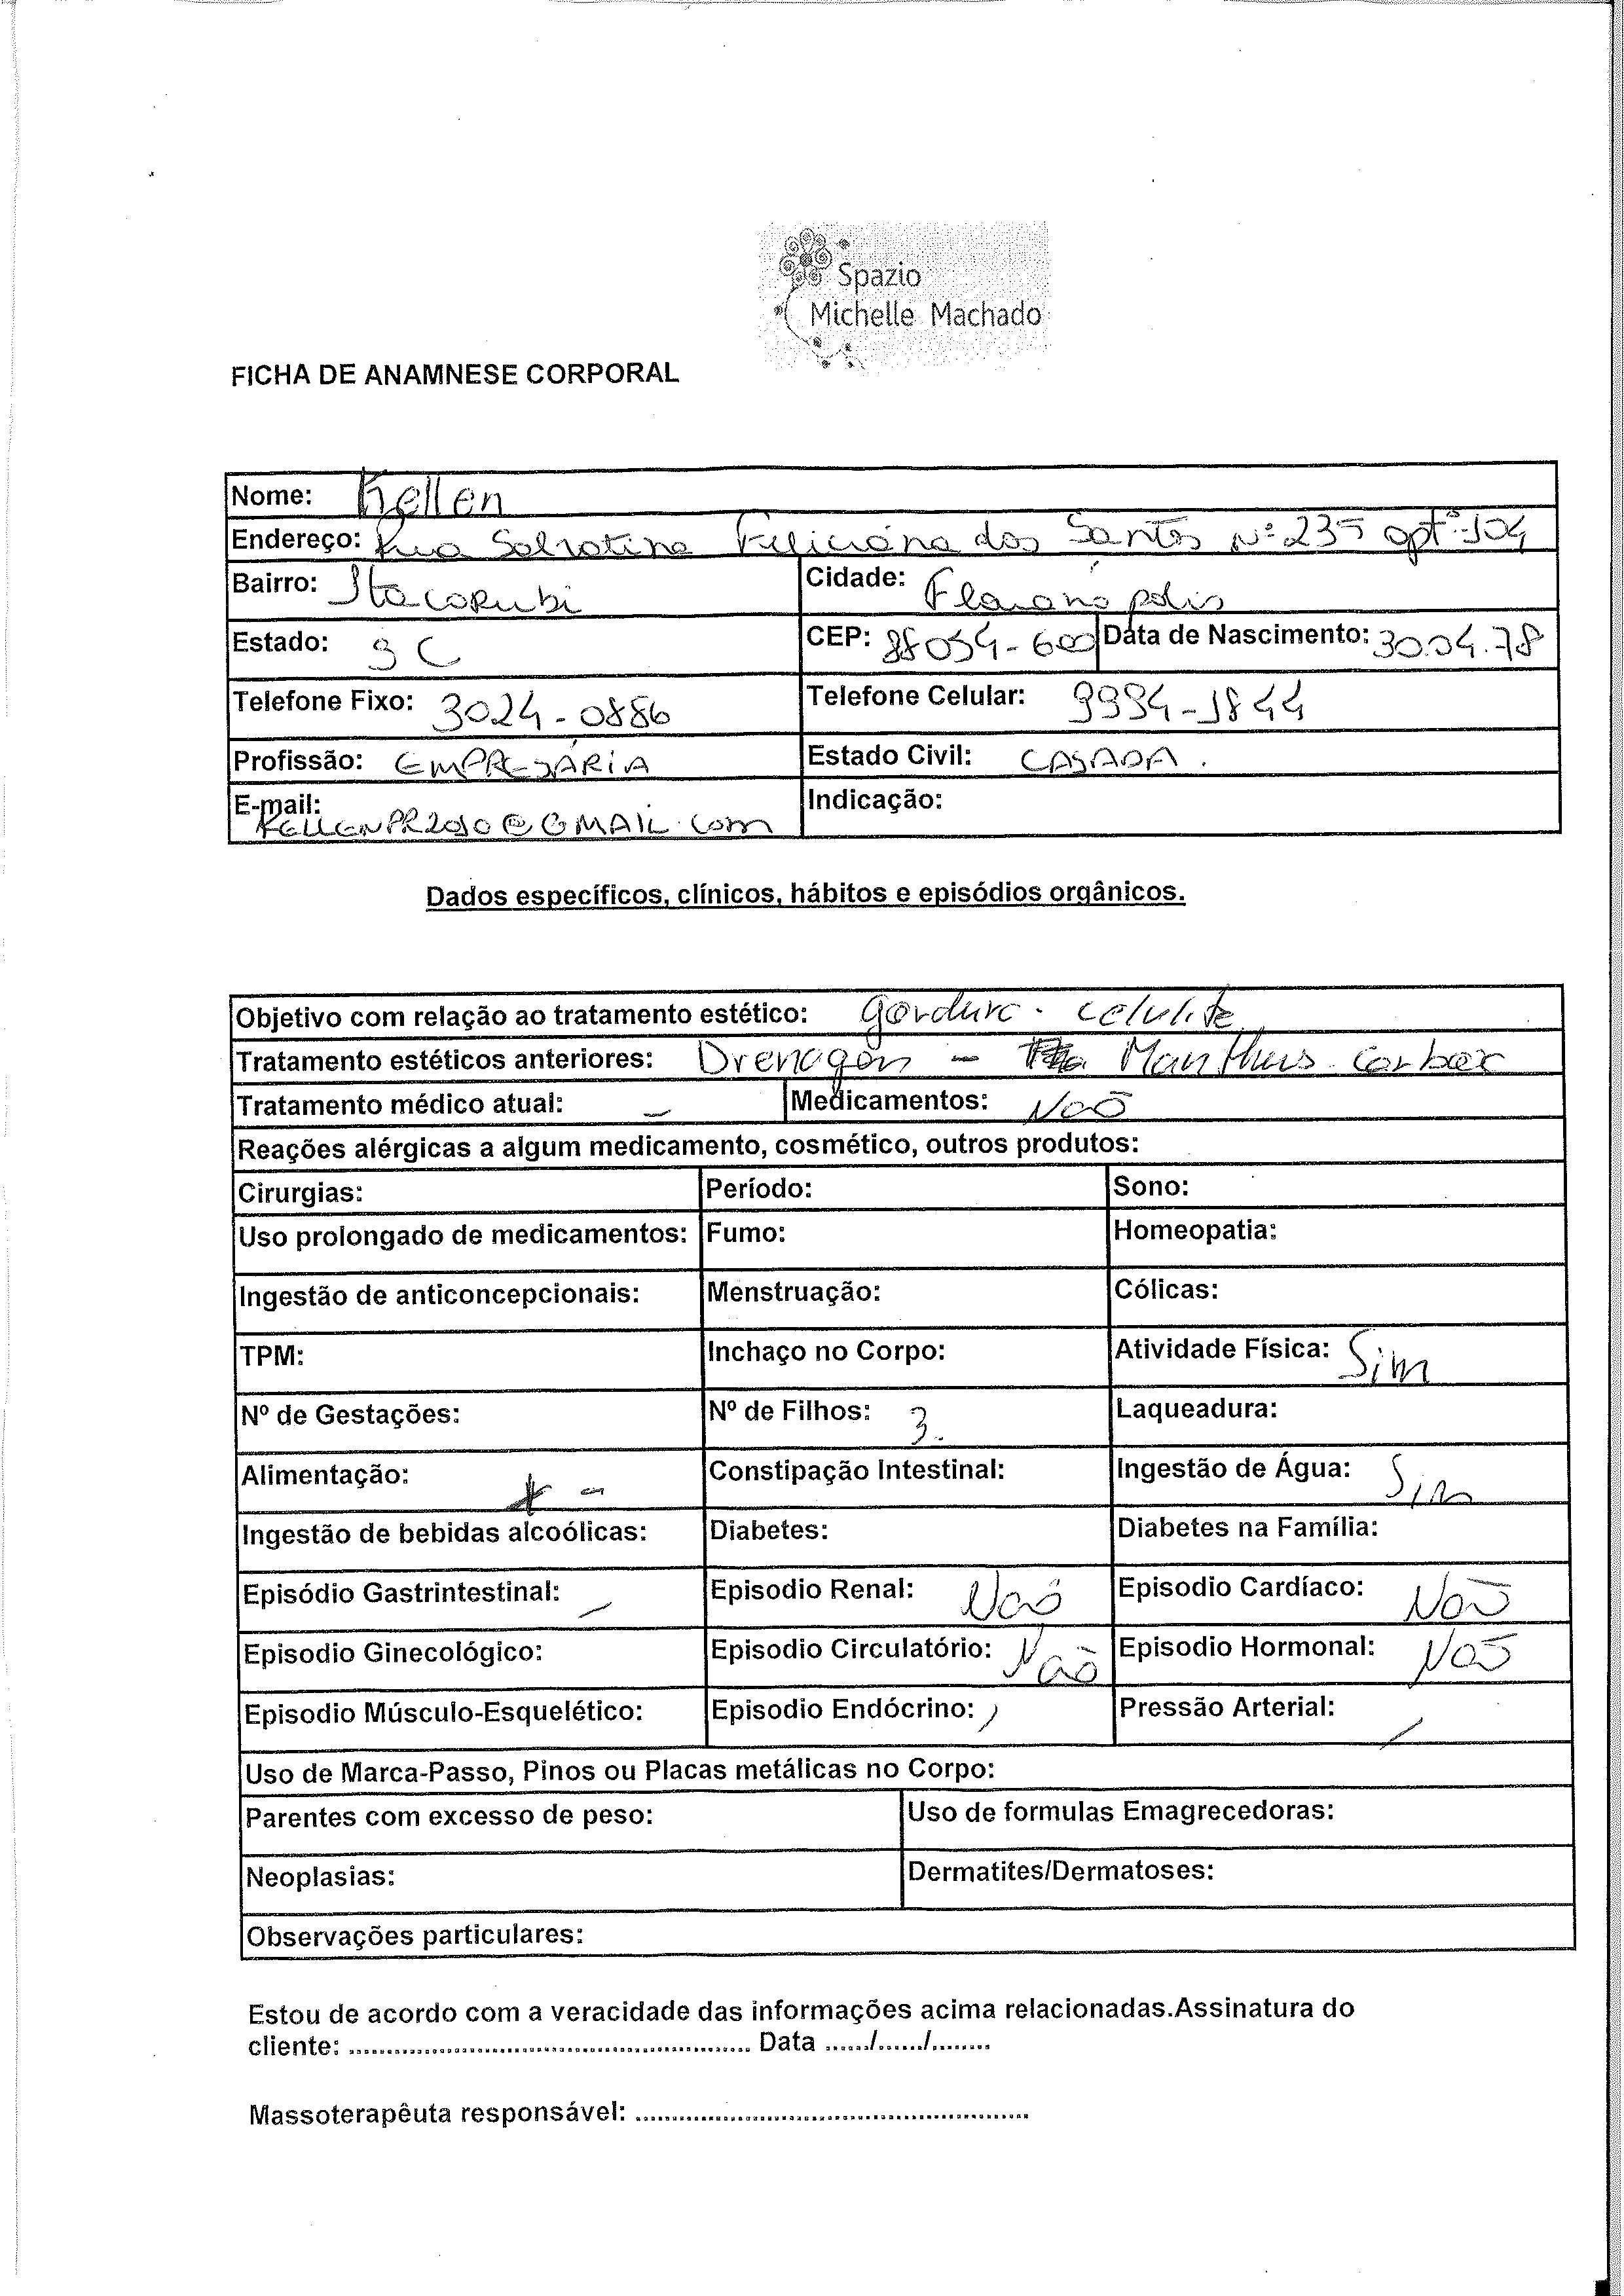 Spazio
Michelle Machado
FICHA DE ANAMNESE CORPORAL
Nome: Kellen
Endereço: Rua Salvatina Feliciana dos Santos Nº 235 apt° 104
Bairro: Itacorubi Cidade: Florianópolis
Estado: SC CEP: 88034-600 Data de Nascimento: 30.04.78
Telefone Fixo: 3024-0886 Telefone Celular: 9994-1844
Profissão: EMPRESÁRIA Estado Civil: CASADA.
E-mail: KELLENPR2010@GMAIL.com Indicação:
Dados específicos, clínicos, hábitos e episódios orgânicos.
Objetivo com relação ao tratamento estético: gordura - celulite
Tratamento estéticos anteriores: Drenagem - Manthus. Carbox
Tratamento médico atual: - Medicamentos: Não
Reações alérgicas a algum medicamento, cosmético, outros produtos:
Cirurgias: Período: Sono:
Uso prolongado de medicamentos: Fumo: Homeopatia:
Ingestão de anticoncepcionais: Menstruação: Cólicas:
TPM: Inchaço no Corpo: Atividade Física: Sim
Nº de Gestações: Nº de Filhos: 3. Laqueadura:
Alimentação: + - Constipação Intestinal: Ingestão de Água: Sim
Ingestão de bebidas alcoólicas: Diabetes: Diabetes na Família:
Episódio Gastrintestinal: - Episodio Renal: Não Episodio Cardíaco: Não
Episodio Ginecológico: Episodio Circulatório: Não Episodio Hormonal: Não
Episodio Músculo-Esquelético: Episodio Endócrino: / Pressão Arterial: /
Uso de Marca-Passo, Pinos ou Placas metálicas no Corpo:
Parentes com excesso de peso: Uso de formulas Emagrecedoras:
Neoplasias: Dermatites/Dermatoses:
Observações particulares:
Estou de acordo com a veracidade das informações acima relacionadas.Assinatura do
cliente: ........................................ Data ....../....../........
Massoterapêuta responsável: ........................................